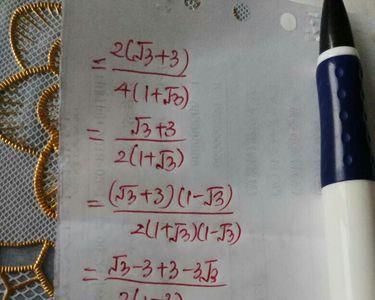 = 2(√3+3) / 4(1+√3)
= √3+3 / 2(1+√3)
= (√3+3)(1-√3) / 2(1+√3)(1-√3)
= √3-3+3-3√3 / 2(1-3)